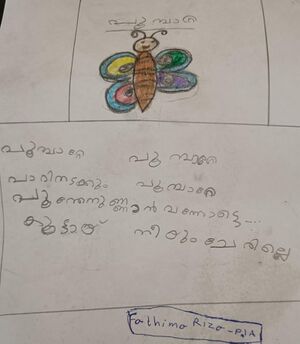 പൂമ്പാറ്റ
പൂമ്പാറ്റേ പൂമ്പാറ്റേ
പാറിനടക്കും പൂമ്പാറ്റേ
പൂന്തേനുണ്ണാൻ വന്നോട്ടെ....
കൂട്ടായ് നീയും ചേരില്ലെ
Fathima Riza-P.A